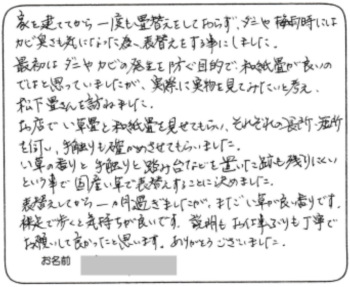 家を建ててから一度も畳替えをしておらず、ダニや梅雨時には
カビ臭さも気になった為、表替えをする事にしました。
最初はダニやカビの発生を防ぐ目的で、和紙畳が良いの
ではと思っていましたが、実際に実物を見てみたいと考え、
松下畳さんを訪ねました。
お店でい草畳と和紙畳を見せてもらい、それぞれの長所・短所
を伺い、手触りも確かめさせてもらいました。
い草の香りと手触りと踏み台などを置いた跡も残りにくい
という事で国産い草で表替えすることに決めました。
表替えしてから一ヵ月過ぎましたが、まだい草が良い香りです。
裸足で歩くと気持ちが良いです。説明もお仕事ぶりも丁寧で
お願いして良かったと思います。ありがとうございました。
お名前